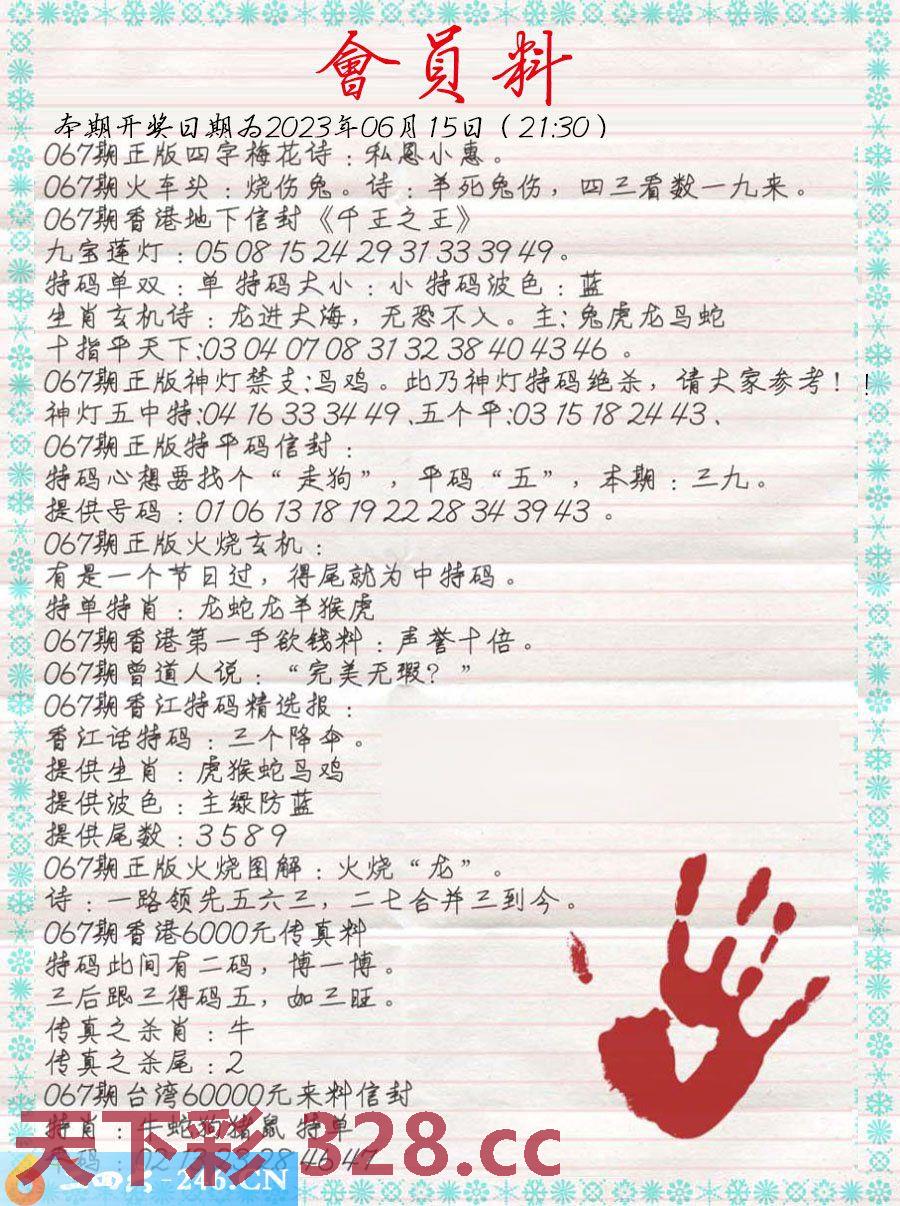 會員料
本期开奖日期为2023年06月15日（21:30）
067期正版四字梅花诗：私恩小惠。
067期火车头：烧伤兔。诗：羊死兔伤，四三看数一九来。
067期香港地下信封《千王之王》
九宝莲灯：05 08 15 24 29 31 33 39 49。
特码单双：单 特码大小：小 特码波色：蓝
生肖玄机诗：龙进大海，无恐不入。主：兔虎龙马蛇
十指平天下:03 04 07 08 31 32 38 40 43 46 。
067期正版神灯禁支:马鸡。此乃神灯特码绝杀，请大家参考！！
神灯五中特:04 16 33 34 49 、五个平:03 15 18 24 43、
067期正版特平码信封：
特码心想要找个“走狗”，平码“五”，本期：三九。
提供号码：01 06 13 18 19 22 28 34 39 43 。
067期正版火烧玄机：
有是一个节日过，得尾就为中特码。
特单特肖：龙蛇龙羊猴虎
067期香港第一手欲钱料：声誉十倍。
067期曾道人说：“完美无瑕？”
067期香江特码精选报：
香江话特码：三个降伞。
提供生肖：虎猴蛇马鸡
提供波色：主绿防蓝
提供尾数：3 5 8 9
067期正版火烧图解：火烧“龙”。
诗：一路领先五六三，二七合并三到今。
067期香港6000元传真料
特码此间有二码，博一博。
三后跟三得码五，如三旺。
传真之杀肖：牛
传真之杀尾：2
067期台湾60000元来料信封
特肖：牛蛇狗猪鼠 特单
46 47
天下彩 328.cc
二四六-246.CN